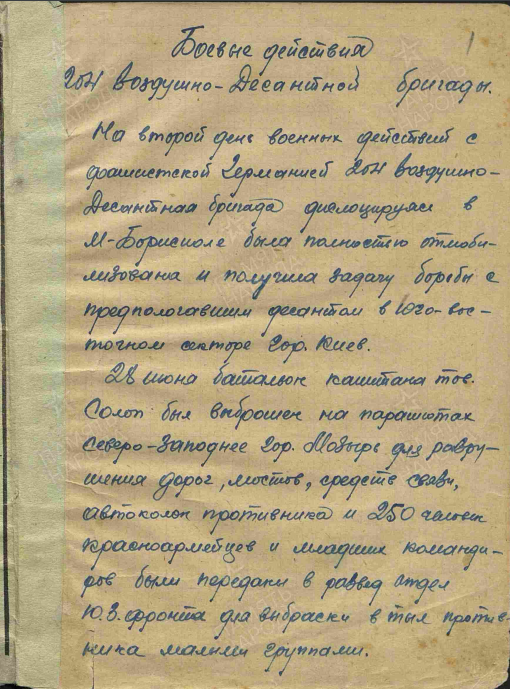 1
Боевые действия
204 Воздушно-Десантной бригады.
На второй день военных действий с
фашистской Германией 204 Воздушно-
Десантная бригада дислоцируяс в
м-Борисполе была полностью отмоби-
лизована и получила задачу борьбы с
предпологавшим десантом в Юго-вос-
точном секторе гор. Киев.
28 июна батальон капитана тов.
Солоп был выброшен на парашютах
Северо-Западнее гор. Мозырь для разру-
шения дорог, мостов, средств связи,
автоколон противника и 250 человек
красноармейцев и младших команди-
ров были передани в развед отдел
Ю.З. фронта для выбраски в тыл против-
ника малыми группами.